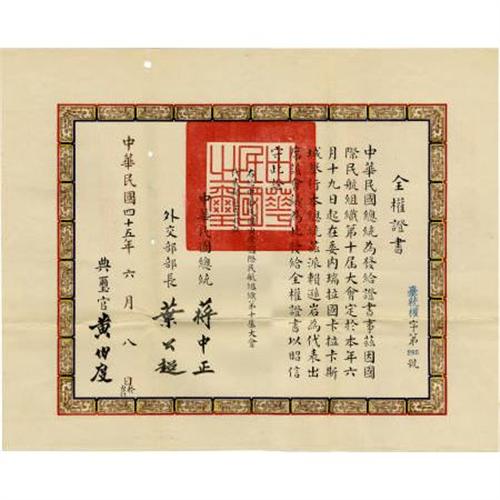 全權證書
臺統權字第 號
中華民國總統為發給證書事茲因國
際民航組織第十屆大會定於本年六
月十九日起在委內瑞拉國卡拉卡斯
城舉行本總統茲派賴遜岩為代表出
席該會議為此發給全權證書以昭信
守此證
際民航組織第十屆大會
中華民國總統 蔣中正
外交部部長 葉公超
中華民國四十五年六月八日
典璽官 黃伯度